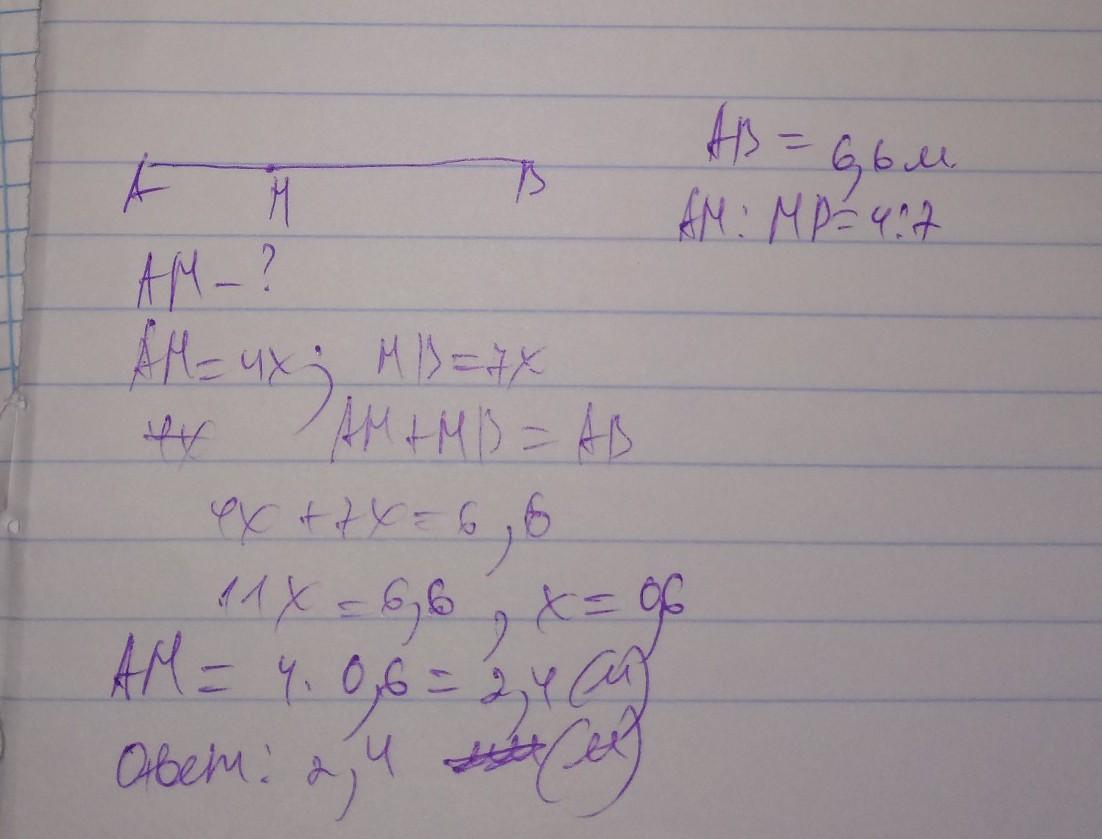 AB = 6,6 м
A M B
AM : MB = 4:7
AM – ?
AM = 4x; MB = 7x
4x AM + MB = AB
4x + 7x = 6,6
11x = 6,6, x = 0,6
AM = 4 · 0,6 = 2,4 (м)
Ответ: 2,4 (м)